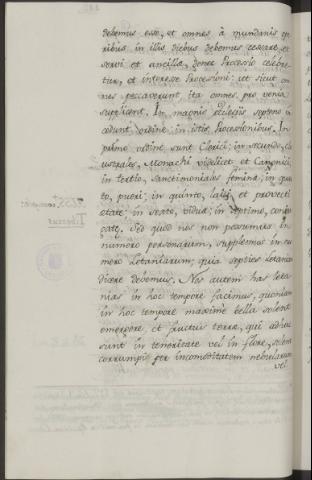 debemus esse, et omnes à mundanis op
ribus in illis diebus debemus cessare, et
servi et ancillæ, donec Processio celebre
tur, et interesse Processioni: ut sicut om
nes peccaverunt, ita omnes pro venia
supplicent. In magnis ecclesiis septem
cedunt ordine in istis Processionibus. In
primo ordine sunt Clerici; in secundo, Cla
ustrales, Monachi videlicet et Canonici,
in tertio, Sanctimoniales feminæ, in quar
to, pueri; in quinto, laici et provecti
etate; in sexto, viduæ; in septimo, conju
gatę. Sed quod nos non possumus in
numero personarum, supplemus in nu
mero Letaniarum; quia septies Letanias
dicere debemus. Nos autem has leta
nias in hoc tempore facimus, quoniam
in hoc tempore maxime bella solent
emergere, et fructus terræ, qui adhuc
sunt in teneritate vel in flore, solent
corrumpi per incommoditatem nebularum
vel